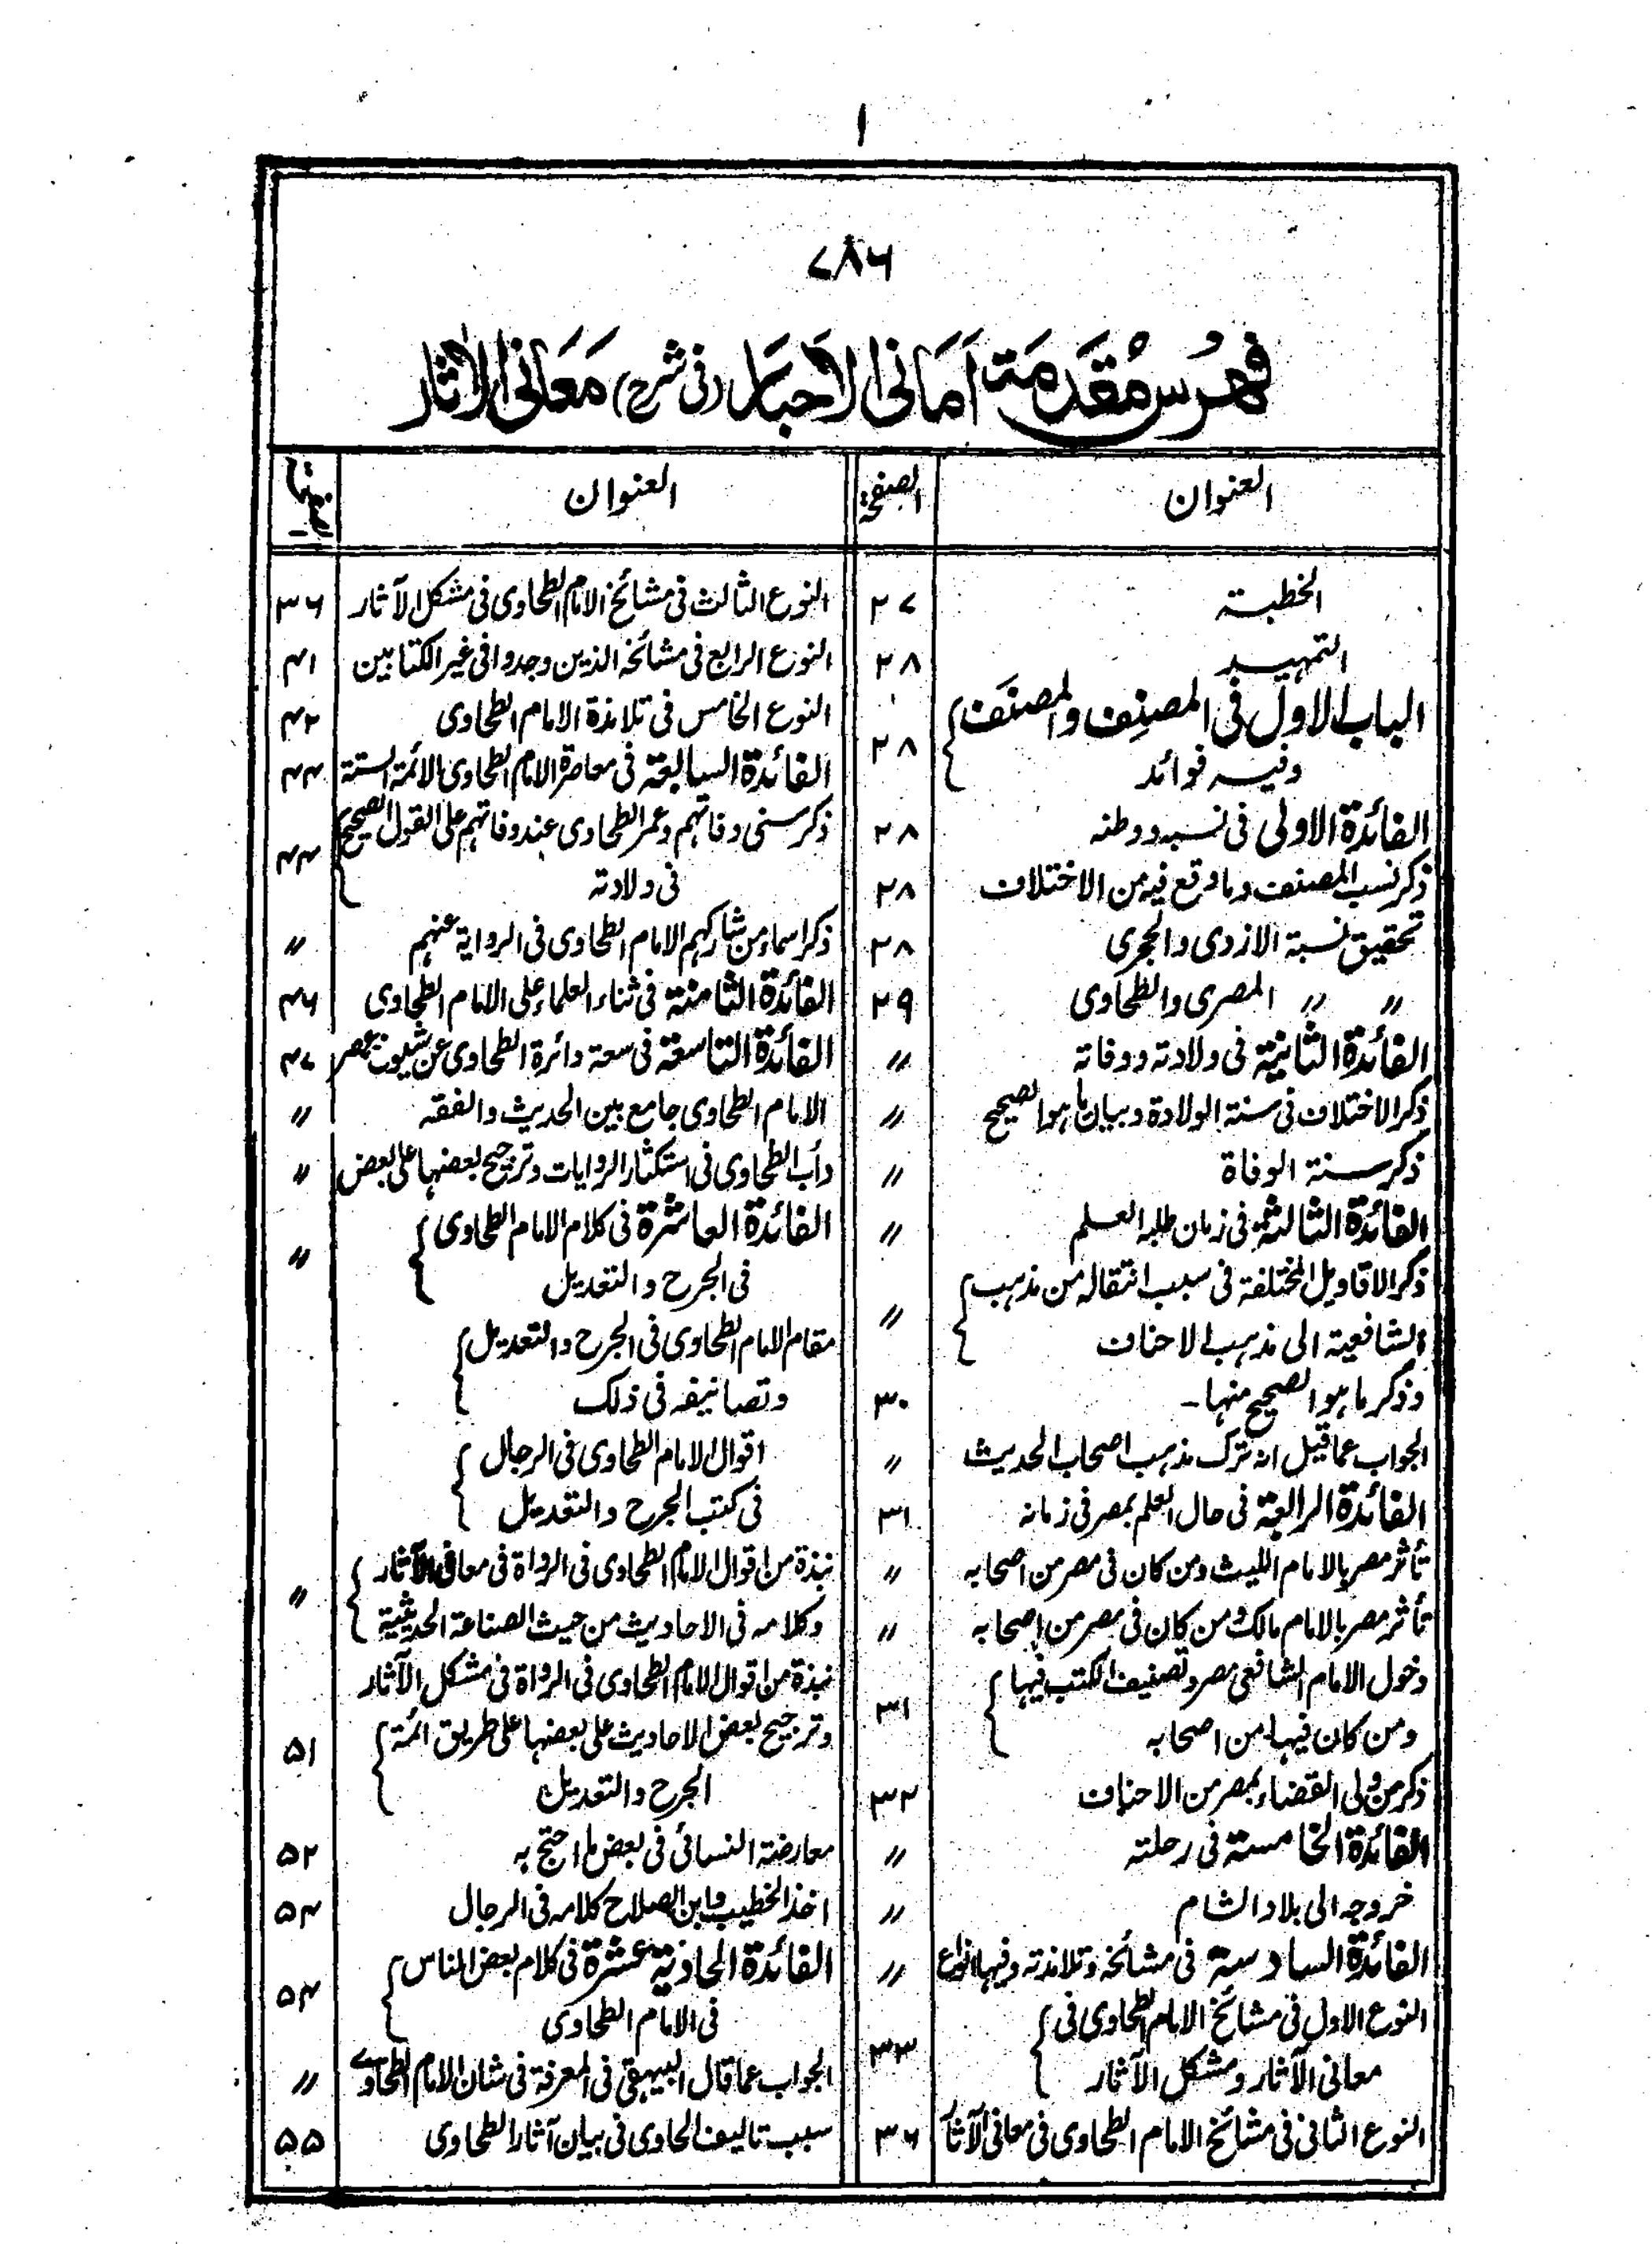 ١
٧٨٦
فهرس مقدمة اماني الاحبار (في شرح) معاني الآثار
العنوان الصفحة
الخطبة ٢٧
التمهيد ٢٨
الباب الاول في المصنِف والمصنَف
وفيه فوائد ٢٨
الفائدة الاولى في نسبه ووطنه ٢٨
ذكر نسب المصنف وما وقع فيه من الاختلاف ٢٨
تحقيق نسبة الازدى والحجرى ٢٨
〃 〃 المصرى والطحاوى ٢٩
الفائدة الثانية في ولادته ووفاته 〃
ذكر الاختلاف في سنة الولادة وبيان ما هو الصحيح 〃
ذكر سنة الوفاة 〃
الفائدة الثالثة في زمان طلبه العلم 〃
ذكر الاقاويل المختلفة في سبب انتقاله من مذهب
الشافعية الى مذهب الاحناف 〃
وذكر ما هو الصحيح منها۔ ٣٠
الجواب عما قيل انه ترك مذهب اصحاب الحديث 〃
الفائدة الرابعة في حال العلم بمصر في زمانه ٣١
تأثر مصر بالامام الليث ومن كان في مصر من اصحابه 〃
تأثر مصر بالامام مالك ومن كان في مصر من اصحابه 〃
دخول الامام الشافعي مصر وتصنيف الكتب فيها
ومن كان فيها من اصحابه ٣١
ذكر من ولى القضاء بمصر من الاحناف ٣٢
الفائدة الخامسة في رحلته 〃
خروجه الى بلاد الشام 〃
الفائدة السادسة في مشائخه وتلامذته وفيها انواع 〃
النوع الاول في مشائخ الامام الطحاوى في
معاني الآثار ومشكل الآثار ٣٣
النوع الثاني في مشائخ الامام الطحاوى في معاني الآثار ٣٦
العنوان الصفحة
النوع الثالث في مشائخ الامام الطحاوى في مشكل الآثار ٣٦
النوع الرابع في مشائخه الذين وجدوا في غير الكتابين ٤١
النوع الخامس في تلامذة الامام الطحاوى ٤٢
الفائدة السابعة في معاصرة الامام الطحاوى الائمة الستة ٤٤
ذكر سنى وفاتهم وعمر الطحاوى عند وفاتهم على القول الصحيح
في ولادته ٤٤
ذكر اسماء من شاركهم الامام الطحاوى في الرواية عنهم 〃
الفائدة الثامنة في ثناء العلماء على الامام الطحاوى ٤٦
الفائدة التاسعة في سعة دائرة الطحاوى عن شيوخ عصره ٤٧
الامام الطحاوى جامع بين الحديث والفقه 〃
دأب الطحاوى في استكثار الروايات وترجيح بعضها على بعض 〃
الفائدة العاشرة في كلام الامام الطحاوى
في الجرح والتعديل 〃
مقام الامام الطحاوى في الجرح والتعديل
وتصانيفه في ذلك
اقوال الامام الطحاوى في الرجال
في كتب الجرح والتعديل
نبذة من اقوال الامام الطحاوى في الرواة في معاني الآثار
وكلامه في الاحاديث من حيث الصناعة الحديثية 〃
نبذة من اقوال الامام الطحاوى في الرواة في مشكل الآثار
وترجيح بعض الاحاديث على بعضها على طريق ائمة ٥١
الجرح والتعديل
معارضة النسائى في بعض ما احتج به ٥٢
اخذ الخطيب وابن الصلاح كلامه في الرجال ٥٤
الفائدة الحادية عشرة في كلام بعض الناس
في الامام الطحاوى ٥٤
الجواب عما قال البيهقى في المعرفة في شان الامام الطحاوى 〃
سبب تاليف الحاوى في بيان آثار الطحاوى ٥٥